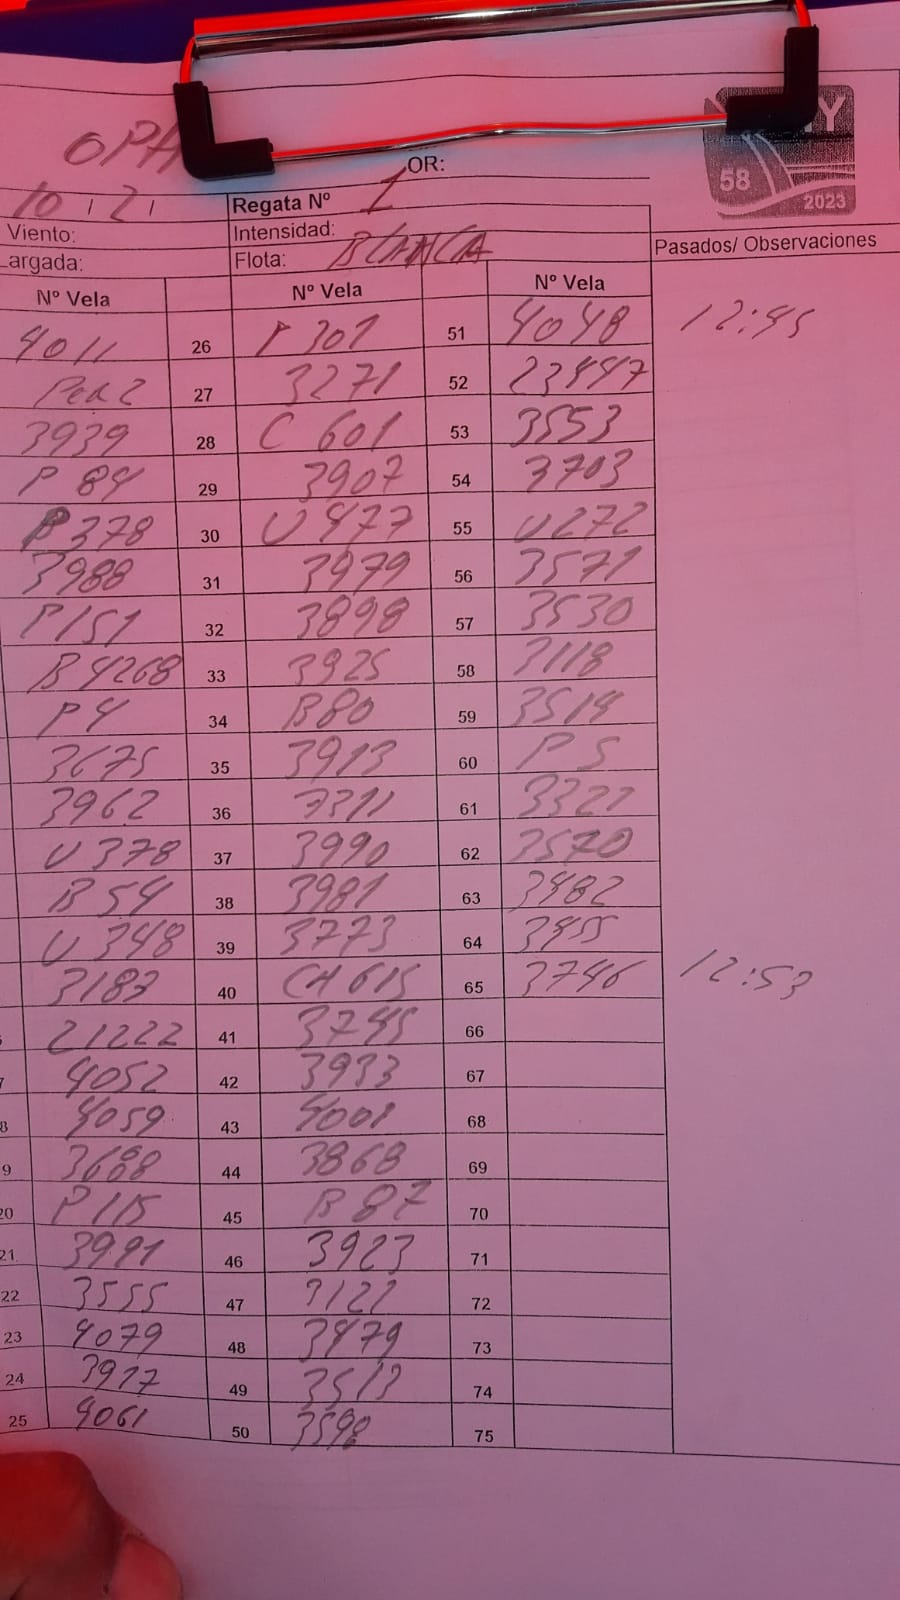 OPH
OR:
58
2023
10 , 2 ,
Regata Nº 1
Viento:
Intensidad:
Pasados/ Observaciones
argada:
Flota: BLANCA
Nº Vela
Nº Vela
Nº Vela
4011 26 P 307 51 4048 12:45
27 3271 52 23447
3939 28 C 601 53 3553
P 84 29 3907 54 3703
P 378 30 U 477 55 U 272
3988 31 3979 56 3571
P 151 32 3898 57 3530
B 4268 33 3925 58 3118
P 4 34 B80 59 3514
3675 35 3913 60 P 5
3962 36 3311 61 3321
U 378 37 3990 62 3570
B 54 38 3981 63 3482
U 348 39 3773 64 3455
3183 40 CH 615 65 3746 12:53
21222 41 3745 66
4052 42 3933 67
8 4059 43 4001 68
9 3688 44 3868 69
20 P 115 45 B 87 70
21 3991 46 3923 71
22 3555 47 3121 72
23 4079 48 3479 73
24 3977 49 3513 74
25 4061 50 3598 75